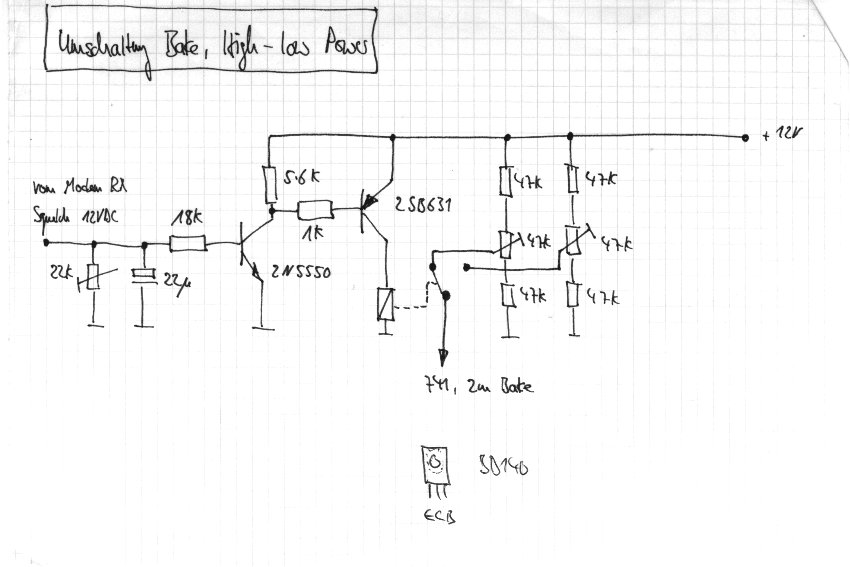 Umschaltung Bake, High-low Power
+ 12V
vom Modem RX
Squelch 12VDC
18K
5.6K
1K
2SB631
47K
47K
22K
22µ
2N5550
47K
47K
47K
47K
741, 2m Bake
BD140
ECB